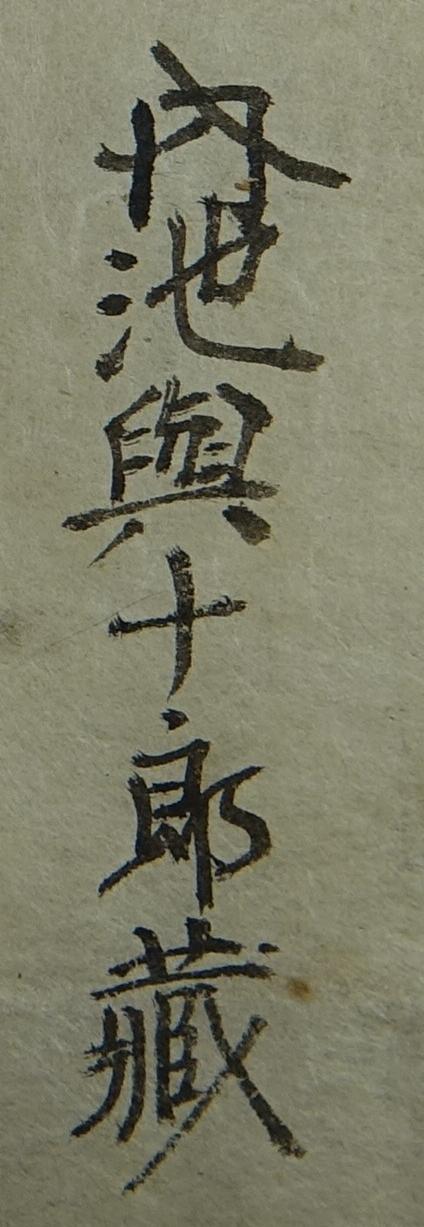 内池與十郎藏